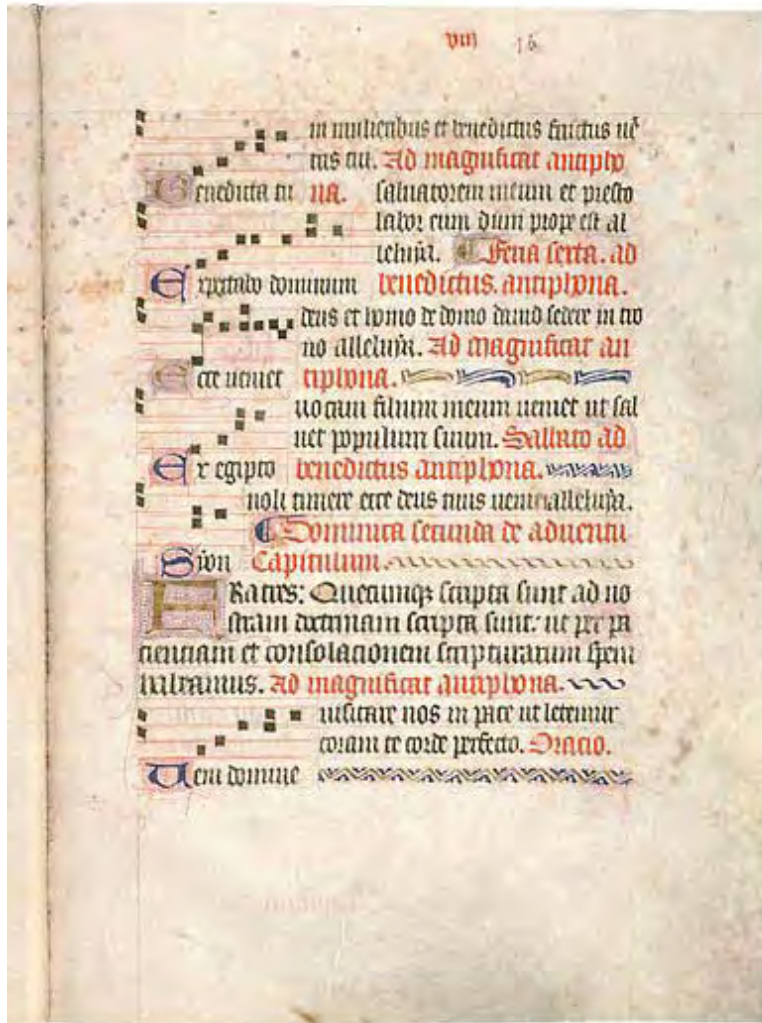 viij 16
in mulieribus et benedictus fructus uē
tris tui. Ad magnificat antipho
Benedicta tu na. saluatorem meum et presto
labor eum dum prope est al
leluya. Feria sexta. ad
Expectabo dominum benedictus. antiphona.
deus et homo de domo dauid sedere in tro
no alleluya. Ad magnificat an
Ecce ueniet tiphona.
uocaui filium meum ueniet ut sal
uet populum suum. Sabbato ad
Ex egipto benedictus antiphona.
noli timere ecce deus tuus ueniet alleluya.
Dominica secunda de aduentu
Sion Capitulum.
FRatres: Quecumqꝫ scripta sunt ad no
stram doctrinam scripta sunt: ut per pa
cienciam et consolacionem scripturarum spem
habeamus. Ad magnificat antiphona.
uisitare nos in pace ut letemur
coram te corde perfecto. Oracio.
Ueni domine